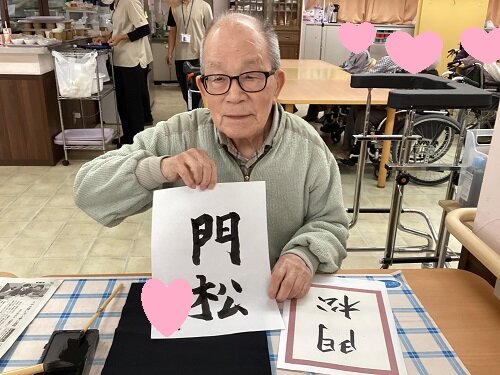 門
松
門
松